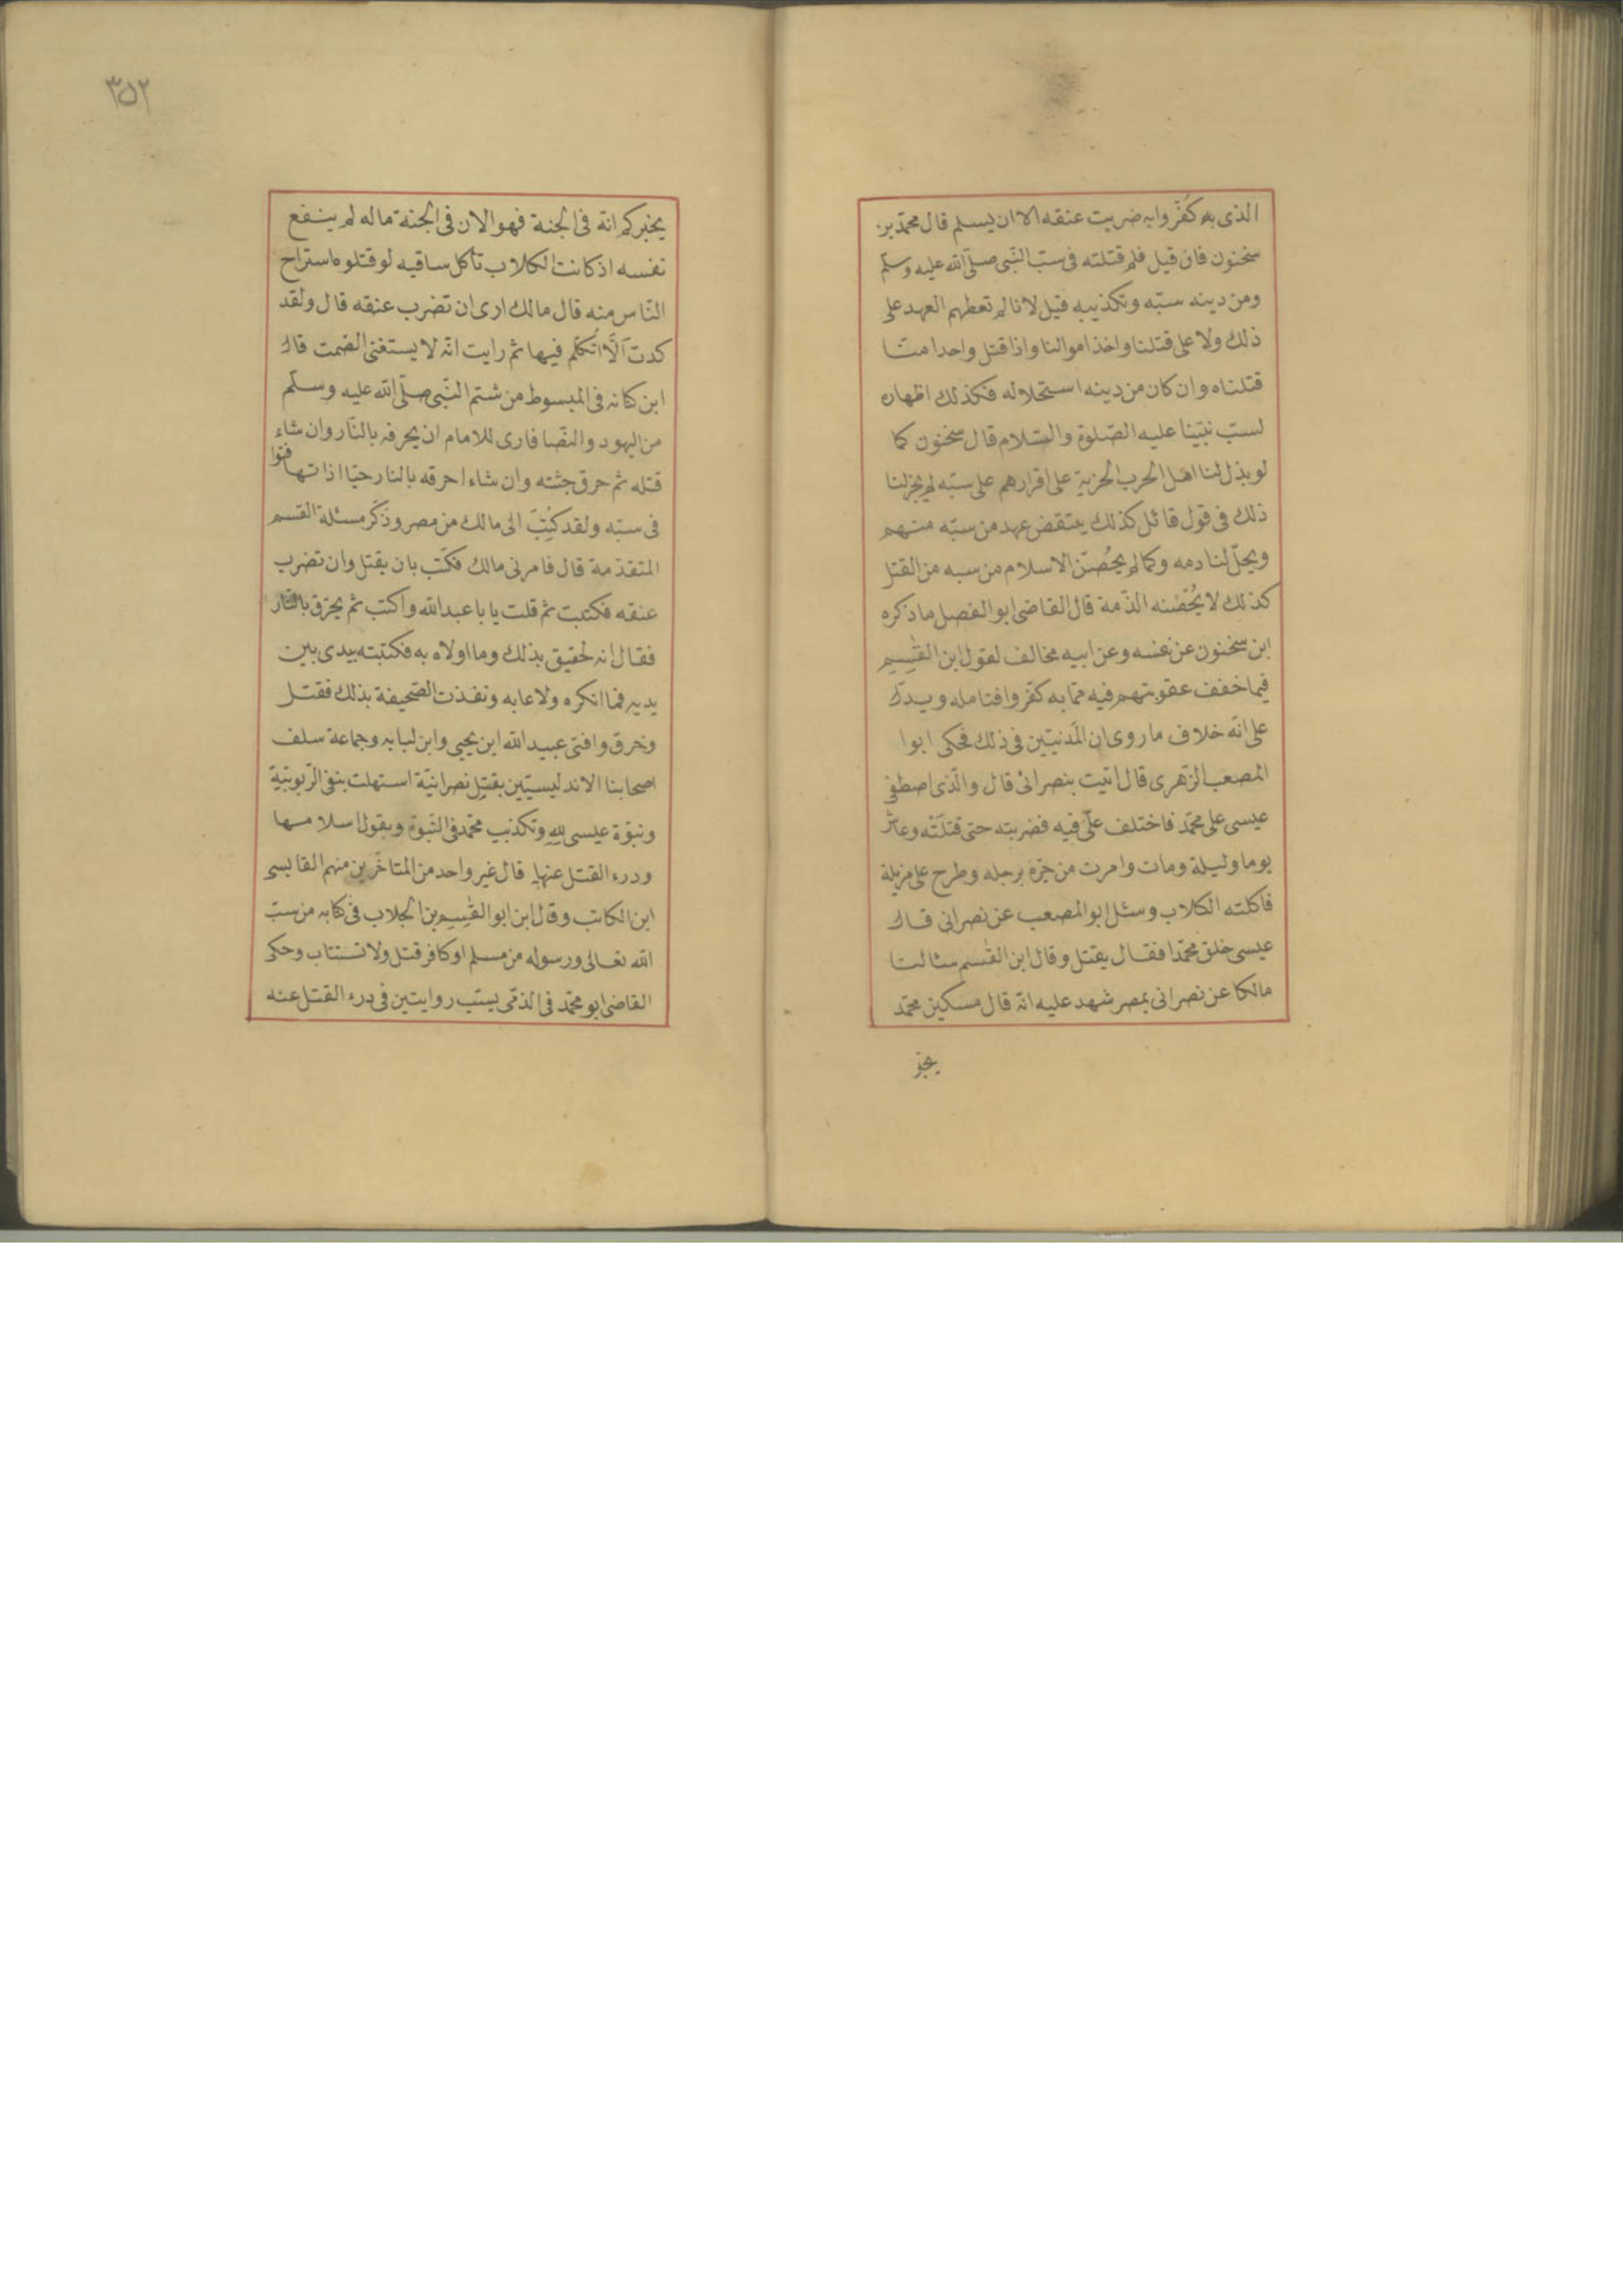 الذى به كُفّروا به ضربت عنقه الا ان يسلم قال محمّد بن
سخنون فان قيل فلم قتلته فى سبّ النّبى صلّى الله عليه وسلّم
ومن دينه سبّه وتكذيبه قيل لانا لم تعطهم العهد على
ذلك ولا على قتلنا واخذ اموالنا واذا قتل واحدا منّا
قتلناه وان كان من دينه استحلاله فكذلك اظهاره
لسبّ نبيّنا عليه الصّلوة والسّلام قال سخنون كما
لو بذل لنا اهل الحرب الجزية على اقرارهم على سبّه لم يجز لنا
ذلك فى قول قائل كذلك ينتقض عهد من سبّه منهم
ويحلّ لنا دمه وكما لم يُحصّن الاسلام من سبه من القتل
كذلك لا يُحَصّنه الذّمة قال القاضى ابو الفصل ما ذكره
ابن سخنون عن نفسه وعن ابيه مخالف لقول ابن القٰسِم
فيما خفف عقوبتهم فيه ممّا به كفروا فتامله ويدلّ
على انّه خلاف ما روى ان المَدنيّين فى ذلك فحكى ابوا
المصعب الزهرى قال اتيت بنصرانىّ قال والّذى اصطفى
عيسى على محمّد فاختلف علىّ فيه فضربته حتى قتلتْه وعاش
يوما وليلة ومات وامرت من جرّه برجله وطرح على مزبلة
فاكلته الكلاب وسئل ابو المصعب عن نصرانى قال
عيسى خلق محمّدا فقال يقتل وقال ابن القٰسم سالنا
مالكا عن نصرانى بمصر شهد عليه انّه قال مسكين محمّد
يخبر
٣٥٢
يخبركم انّه فى الجنة فهو الان فى الجنة ماله لم ينفع
نفسه اذ كانت الكلاب تأكل ساقيه لو قتلوه استراح
النّاس منه قال مالك ارى ان تضرب عنقه قال ولقد
كدت اَلّا اتكلّم فيها ثم رايت انّه لا يستغنى الصّمت قال
ابن كنانه فى المبسوط من شتم النّبى صلّى الله عليه وسلّم
من اليهود والنّصا فارى للامام ان يحرقه بالنّار وان شاء
قتله ثم حرق جثته وان شاء احرقه بالنار حيّا اذا تهافتوا
فى سبّه ولقد كُتِبَ الى مالك من مصر وذَكَر مسئلة القسم
المتقدّمة قال فامرنى مالك فكَتب بان يقتل وان تضرب
عنقه فكتبت ثم قلت يا با عبد الله واكتب ثم يحرّق بالنّار
فقال انه لحقيق بذلك وما اولاه به فكتبته بيدى بين
يديه فما انكره ولا عابه ونفذت الصّحيفة بذلك فقتل
وحرق وافتى عبيد الله ابن يحيى وابن لبابه وجماعة سلف
اصحابنا الاندليسيّين بقتل نصرانيّة استهلت بنفى الرّبوبيّة
ونبوّة عيسى لِلّهِ وتكذيب محمّد فى النّبوّة وبقول اسلامها
ودرء القتل عنها به قال غير واحد من المتاخّرين منهم القابسى
ابن الكاتب وقال ابن ابو القٰسِم بن الجلاب فى كتابه من سبّ
الله تعالى ورسوله من مسلم او كافر قتل ولا تستتاب وحكى
القاضى ابو محمّد فى الذمّى يسبّ روايتين فى درء القتل عنه